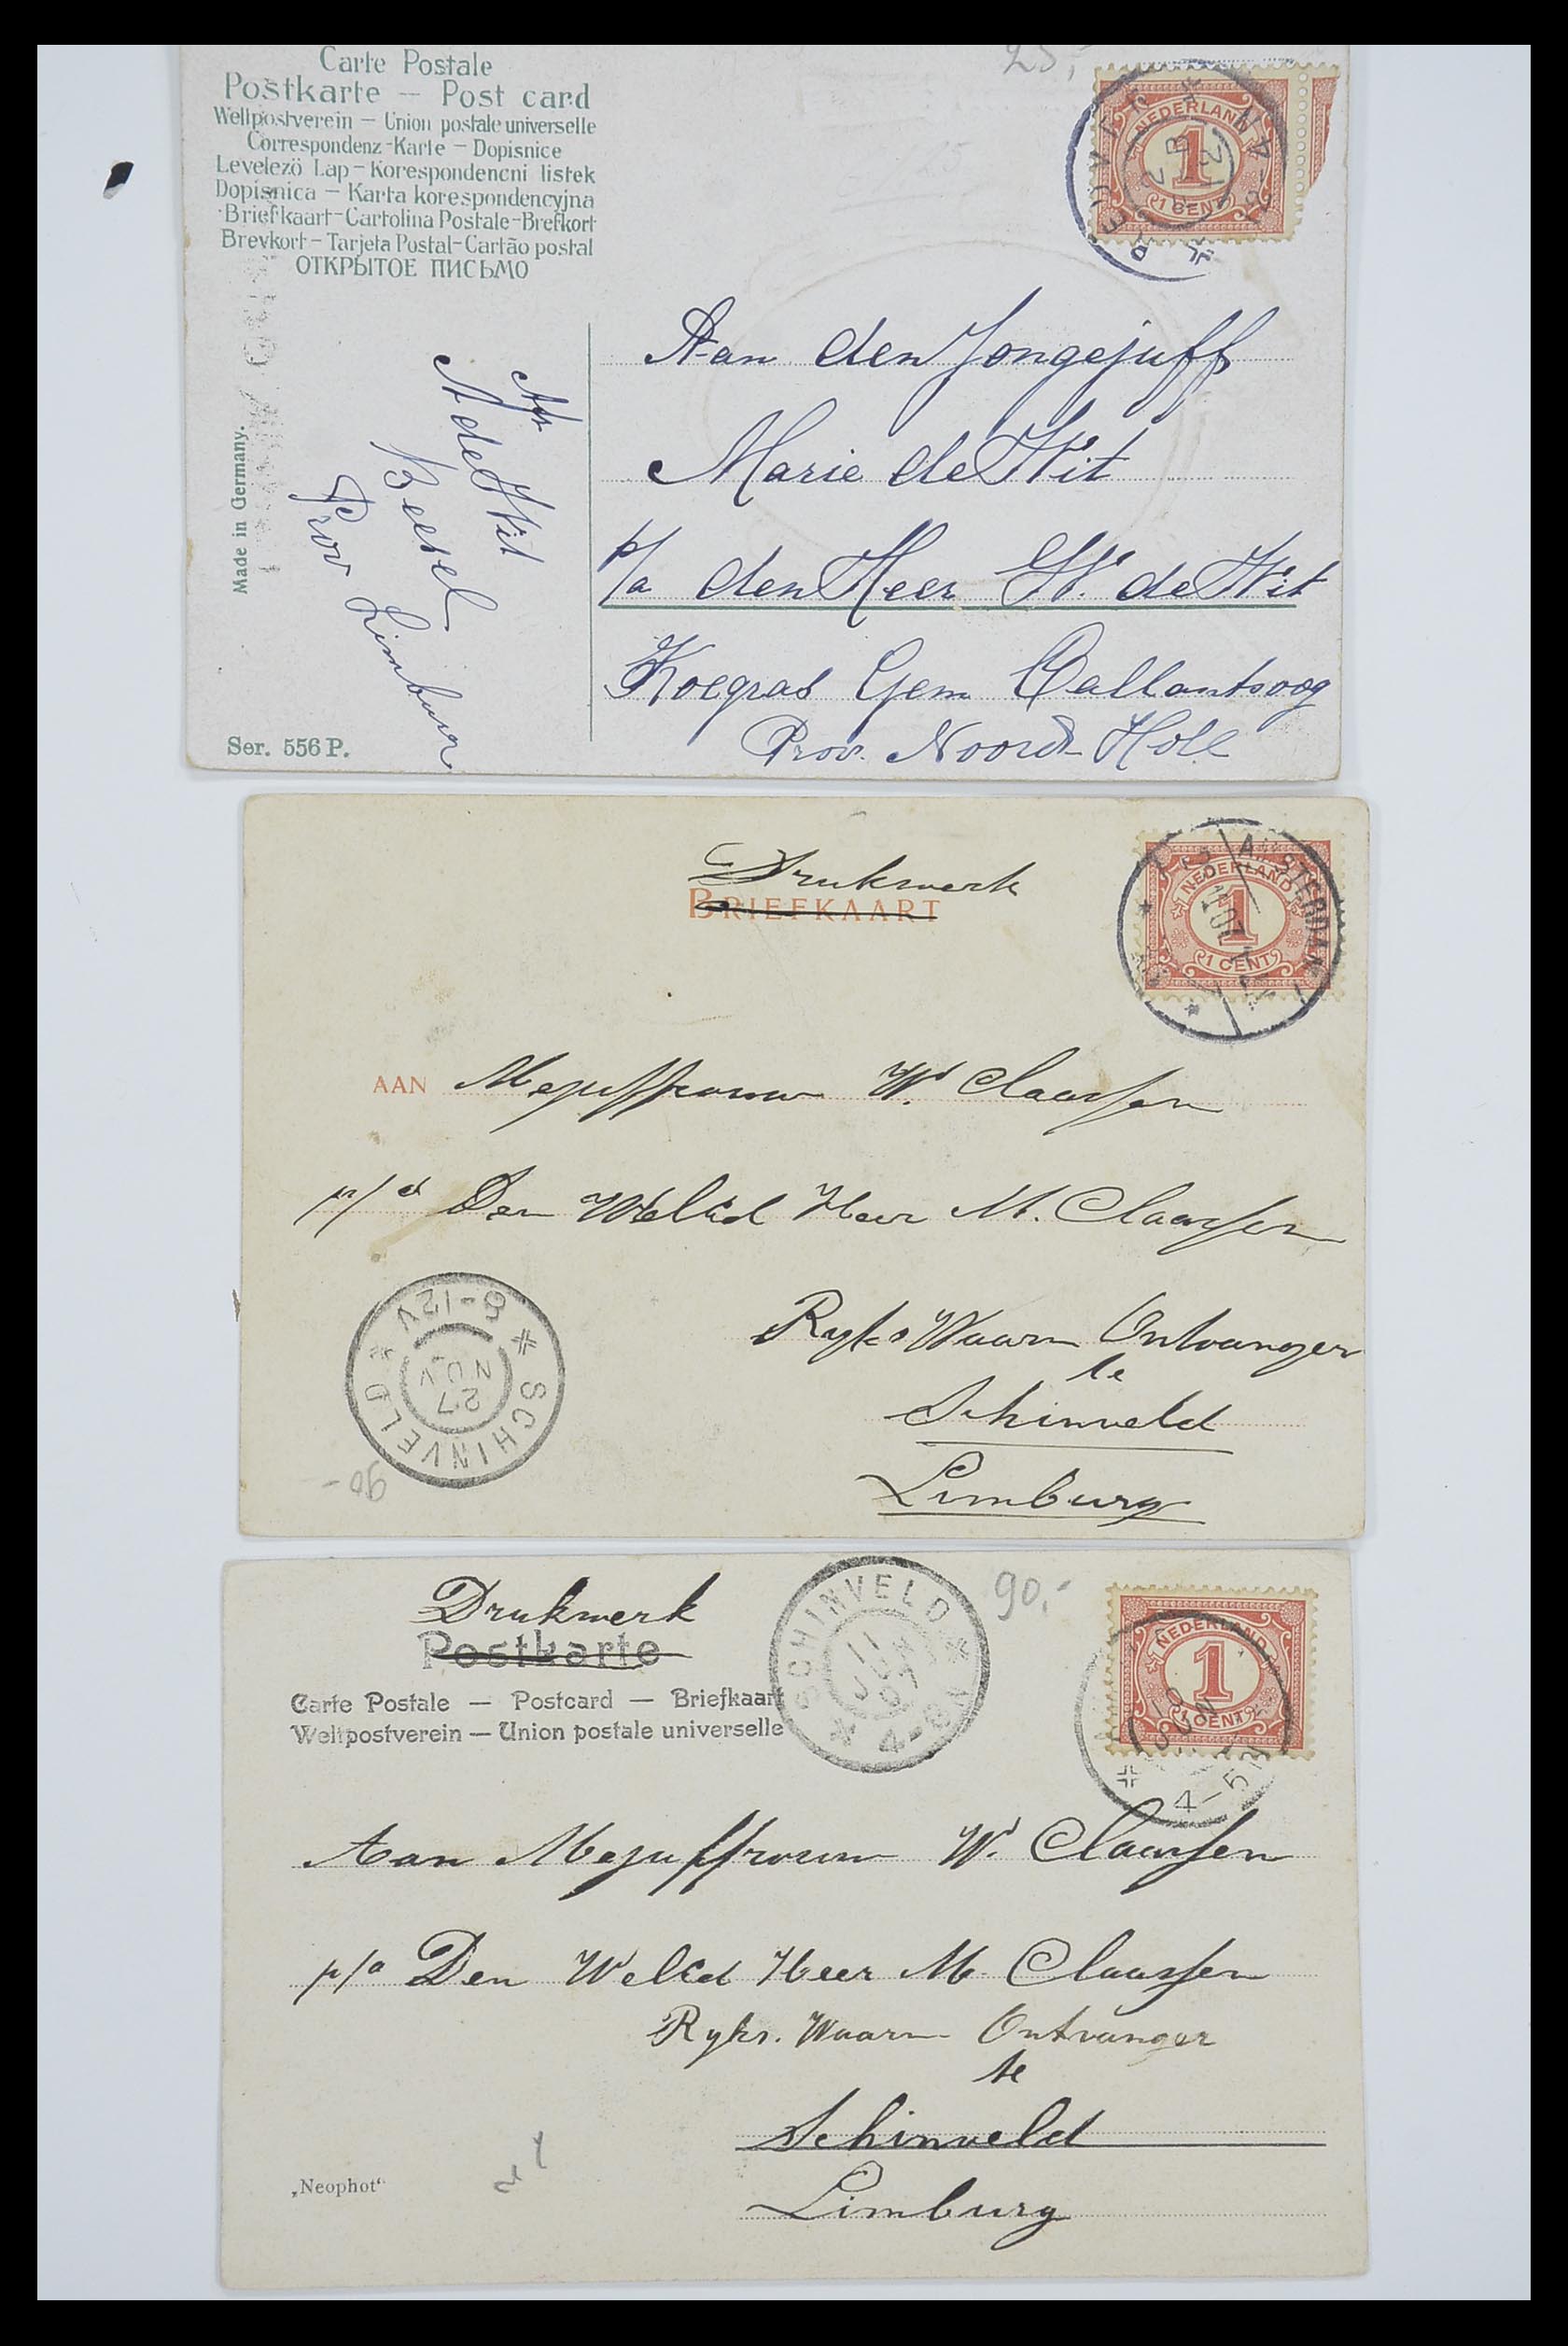 Carte Postale
Postkarte — Post card
Weltpostverein — Union postale universelle
Correspondenz-Karte — Dopisnice
Levelező Lap — Korespondencni listek
Dopisnica — Karta korespondencyjna
Briefkaart-Cartolina Postale-Brefkort
Brevkort — Tarjeta Postal-Cartão postal
ОТКРЫТОЕ ПИСЬМО
25,-
NEDERLAND
1
1 CENT
Aan den Jongejuff
Marie de Wit
p/a den Heer W. de Wit
Koegras Gem Callantsoog
Prov. Noord-Holl
Afz
A de Wit
Beesel
Prov Limburg
Made in Germany.
Ser. 556 P.
Drukwerk
BRIEFKAART
AMSTERDAM
NEDERLAND
1
1 CENT
AAN Mejuffrouw W. Claassen
p/a Den WelEd Heer M. Claassen
Ryks Waarn Ontvanger
te
Schinveld
Limburg
SCHINVELD
8-12V
27
NOV
90-
Drukwerk
Postkarte
Carte Postale — Postcard — Briefkaart
Weltpostverein — Union postale universelle
SCHINVELD
11
JUN
07
4-8N
90,-
NEDERLAND
1
1 CENT
JUN
4-5N
Aan Mejuffrouw W. Claassen
p/a Den WelEd Heer M. Claassen
Ryks. Waarn. Ontvanger
te
Schinveld
Limburg
„Neophot“